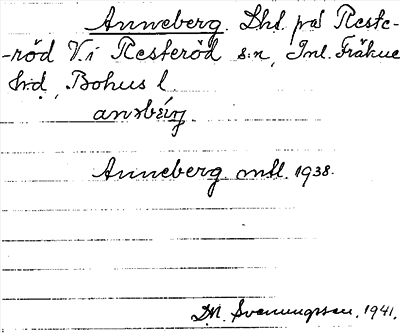 Anneberg. Lht. på Reste-
-röd V. i Resteröd s:n, Inl. Fräkne
hd, Bohus l
Anneberg mtl. 1938.
D.M. Svenungsson. 1941.